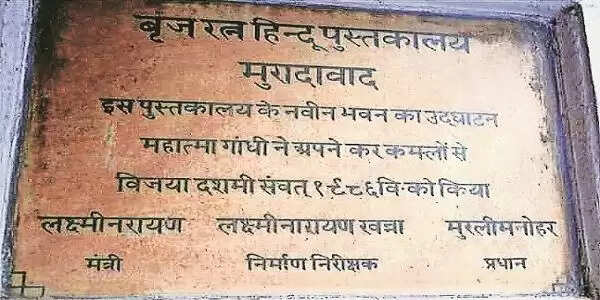 बृज रत्न हिन्दू पुस्तकालय
मुरादाबाद
इस पुस्तकालय के नवीन भवन का उदघाटन
महात्मा गांधी ने अपने कर कमलों से
विजया दशमी संवत् १९८६ वि॰ को किया
लक्ष्मीनरायण लक्ष्मीनारायण खन्ना मुरलीमनोहर
मंत्री निर्माण निरीक्षक प्रधान